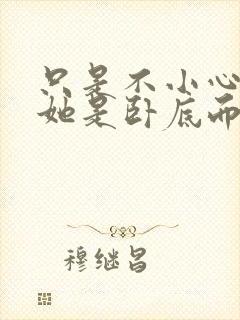 只是不小心
她是卧底而
穆继昌